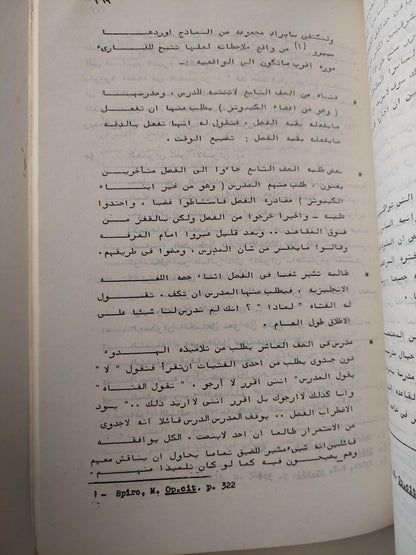 ٣١٩
ولنكتفى بايراد مجموعه من النماذج اوردهـــا
سبيرو (١) من واقع ملاحظاته لعلها تتيح للقـارىء
صوره اقرب ماتكون الى الواقعيه :ـ
* فتاه من الصف التاسع لاتنتبه للدرس ، ومدرسهـا
( وهو من اعضاء الكيبوتز ) يطلب منها ان تفعـل
مايفعله بقيه الفصل ، فتقول له انها تفعل بالدقه
مايفعله بقيه الفصل : تضييع الوقت .
* بعض طلبه الصف التاسع جاءوا الى الفصل متأخريـن
يغنون ، طلب منهم المدرس ( وهو من غير ابنـاء
الكيبوتز ) مغادره الفصل فاستشاطوا غضبا ، واحتدوا
عليه ــ واخيرا خرجوا من الفصل ولكن بالقفز مـن
فوق المقاعد .. وبعد قليل عبروا امام الغرفـه
وقالوا مايحقر من شأن المدرس ، ومضوا فى طريقهم .
* طالبه تثير شغبا فى الفصل اثناء حصه اللغــه
الانجليزيه ، فيطلب منها المدرس ان تكف . تقــول
له الفتاه " لماذا " ؟ انك لم تدرس لنا شيئا علـى
الاطلاق طول العام .
* مدرس فى الصف العاشر يطلب من تلاميذه الهـــدوء
دون جدوى يطلب من احدى الفتيات ان تقرأ فتقول " لا "
يقول المدرس " اننى اقرر لا ارجو . " تقول الفتـاه "
وانا كذلك لا ارجوك بل اقرر اننى لا اريد ذلك .. " يسود
الاضطراب الفصل .. يوقف المدرس الدرس قائلا انه لاجدوى
من الاستمرار طالما ان احد لاينصت . الكل يوافقـه
قائلين انه شىء مثير للضيق تماما يحاول ان يناقش معهم
وهم يصيحـون فيه كما لو كان تلميذا منهــم .
١ - Spiro, M. Op.cit. p. 322